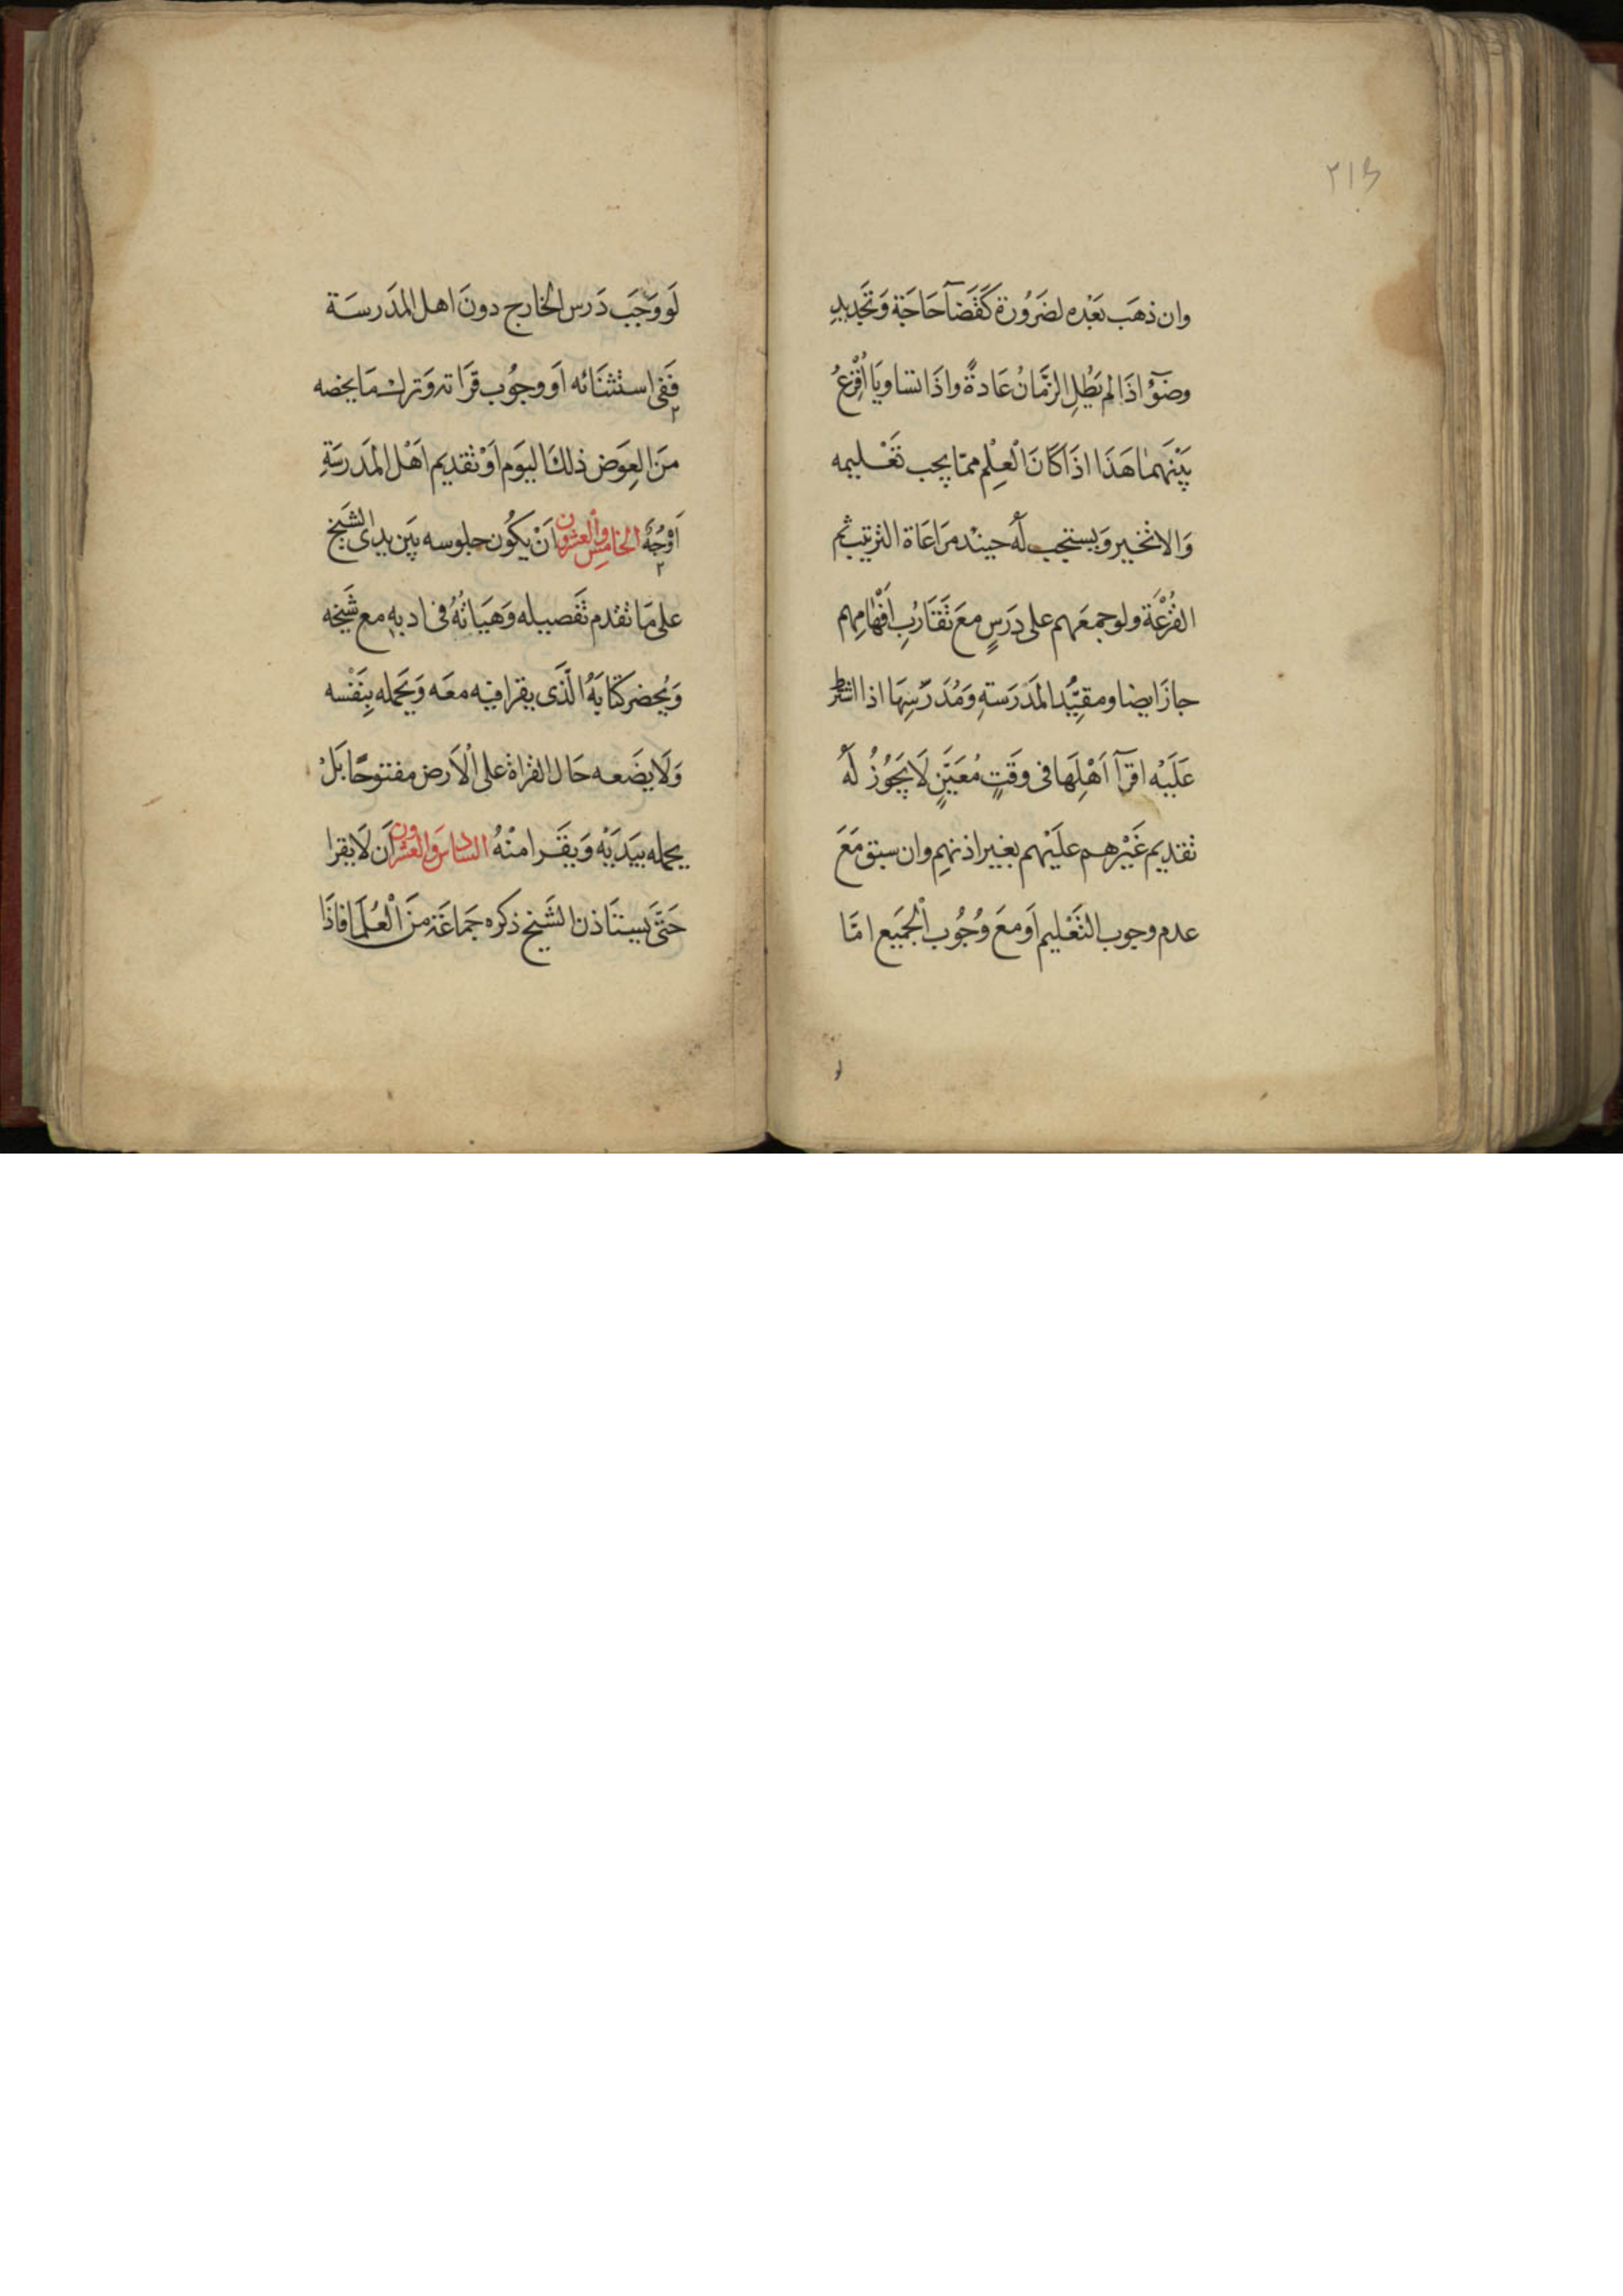 ٢١٤
وان ذهَب بَعْده لضَرُورة كَقَضَآ حَاجَة وَتَجديدِ
وضوٓءٍ اذَا لم يَطُلِ الزَّمَانُ عَادةً واذَا تساويَا أُقْرِعُ
بَيْنَهمُا هَذَا اذَا كَانَ الْعِلْم ممّا يجب تَعْليمه
وَالا تخير وَيستحب لَهُ حينئد مرَاعَاة الترتيب ثم
القُرْعَة ولو جمعَهم على دَرَسٍ معَ تَقَارُبِ اَفْهَامِهم
جازَ ايضا ومقيّد المَدْرَسَةِ وَمُدَرّسِهَا اذا اشترط
عَلَيْه اقرآ اَهْلِهَا فى وقَتٍ مُعَيّنٍ لَا يَجُوزُ لَهُ
تقديم غَيْرهم علَيْهم بغير اذنهِم وان سبق مَعَ
عدم وجوب التَعْليم اَو معَ وُجُوب الْجَميع امّا
لو
لَو وَجَبَ دَرس الخارج دونَ اهل المَدَرسَة
فَفى استثنَائه اَو وجُوب قرَاته وَترك مَا يخصه
منَ العِوَض ذلكَ اليَوم اَوْ تقديم اَهْل المَدرسَةِ
اَوْجُهٌ الخامِس والْعشرون اَنْ يكُون جلوسه بَيَن يدى الشيَخ
على مَا تقدم تَفصيله وَهَيَاتُهُ فى ادبهِ مع شَيخه
وَيُحضر كتابَهُ الّذَى يقرا فيه معَه وَيَحمله بِنَفْسه
وَلَا يضَعه حَال القراة على الْاَرض مفتوحًا بَلْ
يحمله بيَدَيْه وَيقَرا منْهُ السادس وَالعشرون اَن لَا يقرا
حَتّىَ يَستَاذن الشَيخ ذكره جَماعَة منَ الْعُلَمَا فاذَا